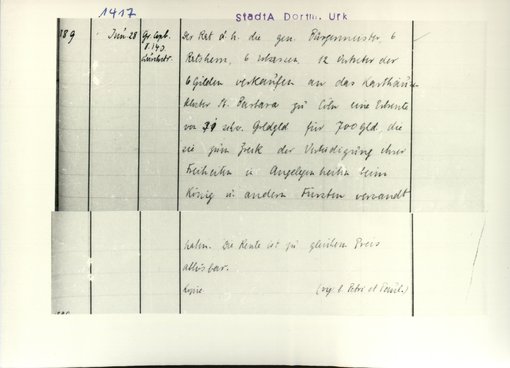 1417
StadtA Dortm. Urk
389 Juni 28 Gr. Copb. Der Rat d. h. die gen. Bürgermeister, 6
S. 140 Ratsherrn, 6 Erbsassen, 12 Vertreter der
6 Gilden verkaufen an das Karthäuser
kloster St. Barbara zu Cöln eine Erbrente
von schw. Goldgld für 700 Gld, die
sie zum Zweck der Verteidigung ihrer
Freiheiten in Angelegenheiten beim
König u. andern Fürsten verwandt
haben. Die Rente ist zu gleichem Preis
ablösbar.
Kopie (vig. b. Petri et Pauli.)